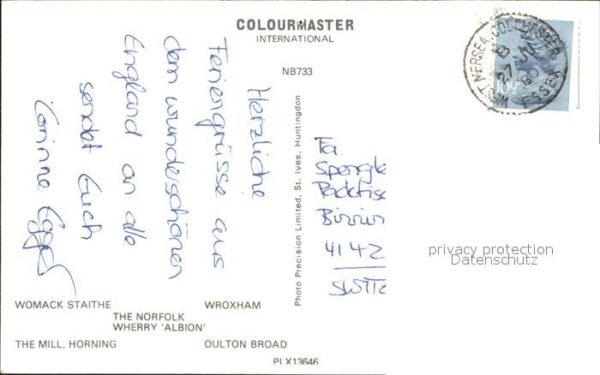 COLOURMASTER
INTERNATIONAL
NB733
Herzliche
Feriengrüsse aus
dem wunderschönen
England an alle
sendet Euch
Corinne
Photo Precision Limited, St. Ives, Huntingdon
WEST MERSEA. COLCHESTER
ESSEX
27 JU
80
10½P
Fa
4142
privacy protection
Datenschutz
WOMACK STAITHE
WROXHAM
THE NORFOLK
WHERRY 'ALBION'
THE MILL, HORNING
OULTON BROAD
PLX13646